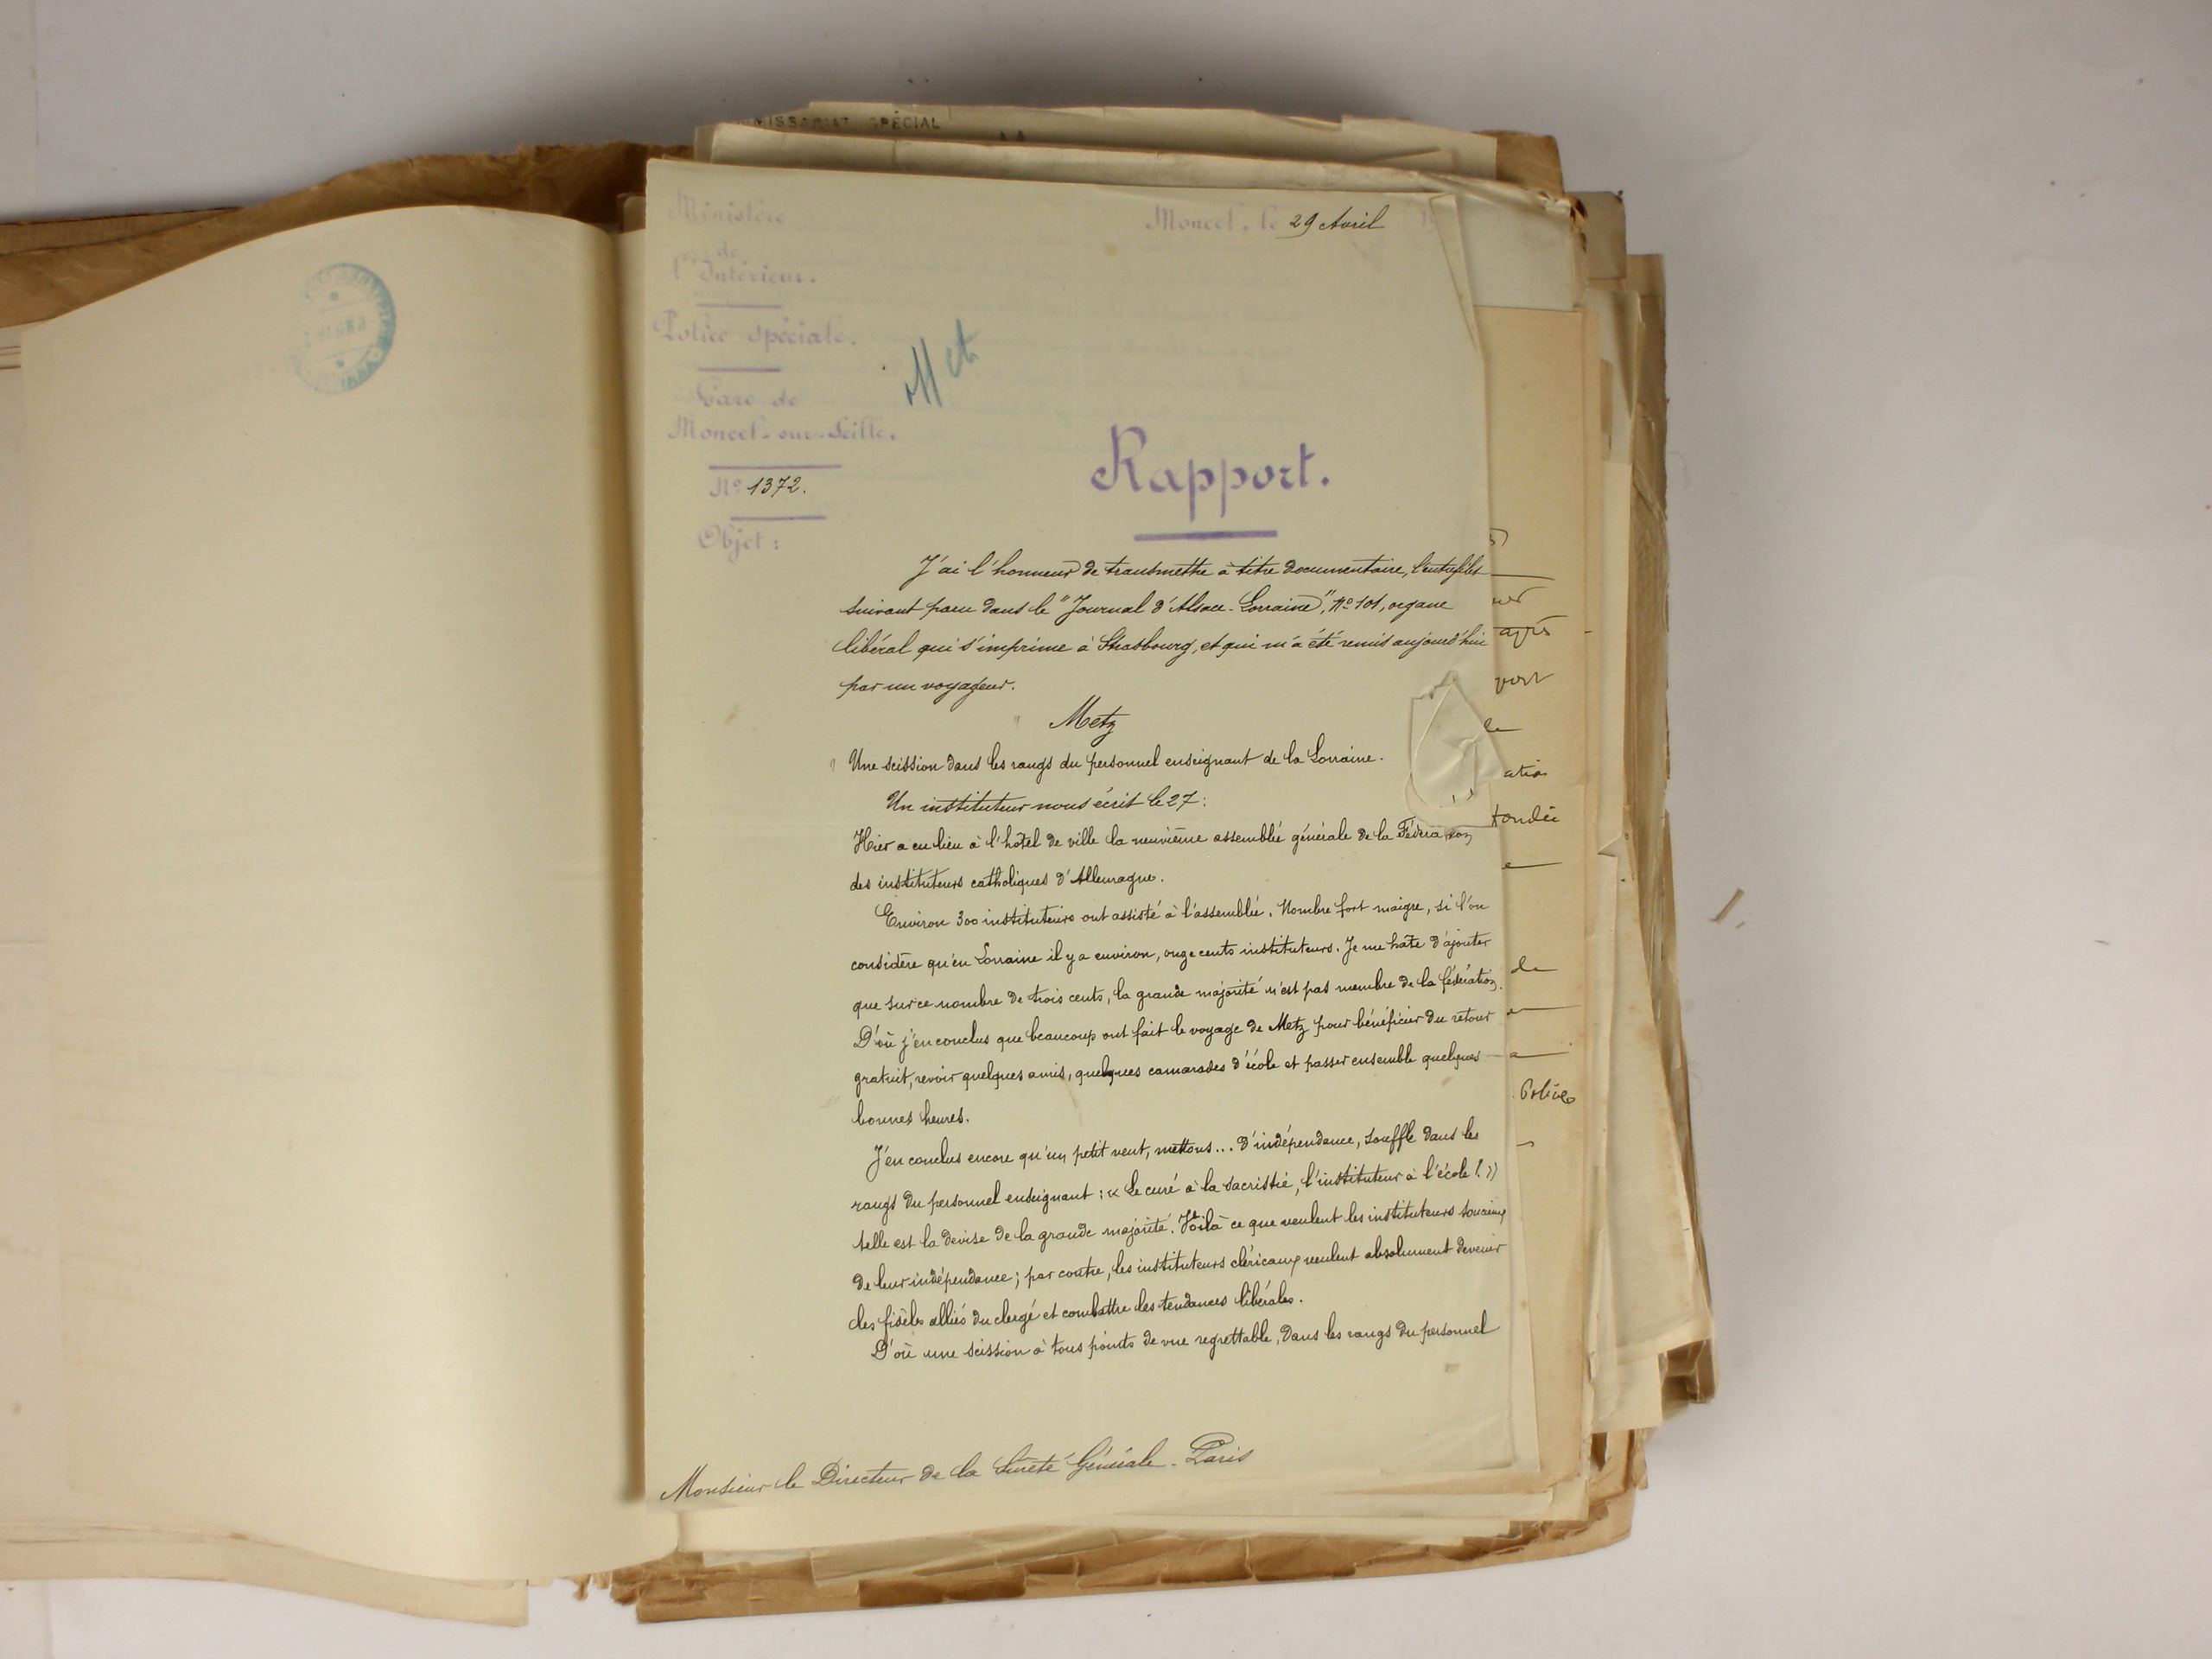 SPÉCIAL
Ministère
de
l'Intérieur.
Police Spéciale.
Gare de
Moncel-sur-Seille.
No 1372.
Objet :
Moncel, le 29 Avril 19
M et
Rapport.
J'ai l'honneur de transmettre à titre documentaire, l'entrefilet
suivant paru dans le "Journal d'Alsace-Lorraine", No 101, organe
libéral qui s'imprime à Strasbourg, et qui m'a été remis aujourd'hui
par un voyageur.
" Metz
" Une scission dans les rangs du personnel enseignant de la Lorraine.
Un instituteur nous écrit le 27 :
Hier a eu lieu à l'hôtel de ville la neuvième assemblée générale de la Fédération
des instituteurs catholiques d'Allemagne.
Environ 300 instituteurs ont assisté à l'assemblée. Nombre fort maigre, si l'on
considère qu'en Lorraine il y a environ, onze cents instituteurs. Je me hâte d'ajouter
que sur ce nombre de trois cents, la grande majorité n'est pas membre de la fédération.
D'où j'en conclus que beaucoup ont fait le voyage de Metz pour bénéficier du retour
gratuit, revoir quelques amis, quelques camarades d'école et passer ensemble quelques
bonnes heures.
J'en conclus encore qu'un petit vent, mettons... d'indépendance, souffle dans les
rangs du personnel enseignant : « Le curé à la sacristie, l'instituteur à l'école ! »
telle est la devise de la grande majorité. Voilà ce que veulent les instituteurs soucieux
de leur indépendance ; par contre, les instituteurs cléricaux veulent absolument devenir
les fidèles alliés du clergé et combattre les tendances libérales.
D'où une scission à tous points de vue regrettable, dans les rangs du personnel
Monsieur le Directeur de la Sûreté Générale - Paris
après
port
le
ation
de
a
Police